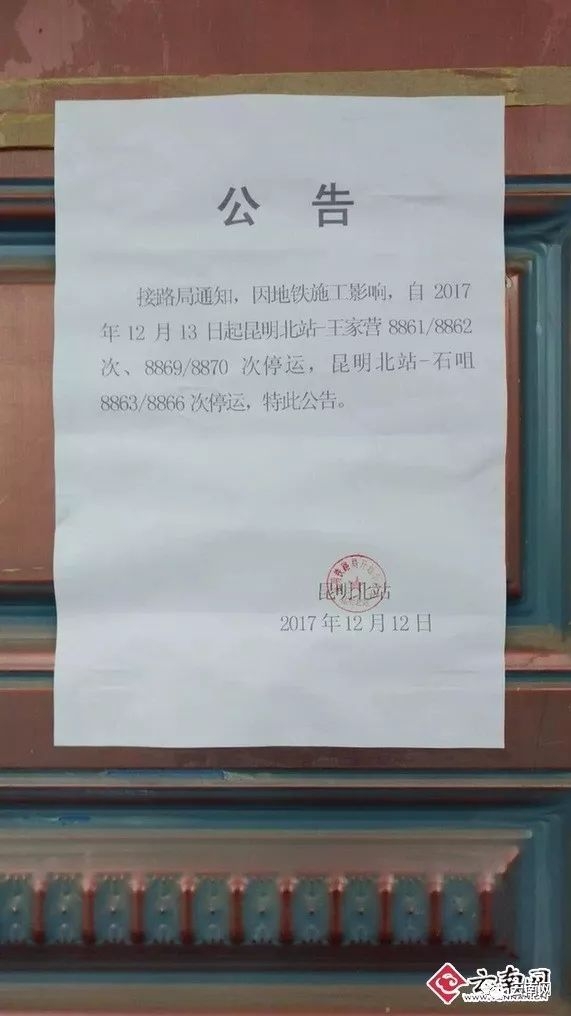 公 告
接路局通知，因地铁施工影响，自 2017
年 12 月 13 日起昆明北站-王家营 8861/8862
次、8869/8870 次停运，昆明北站-石咀
8863/8866 次停运，特此公告。
昆明北站
2017 年 12 月 12 日
云南网